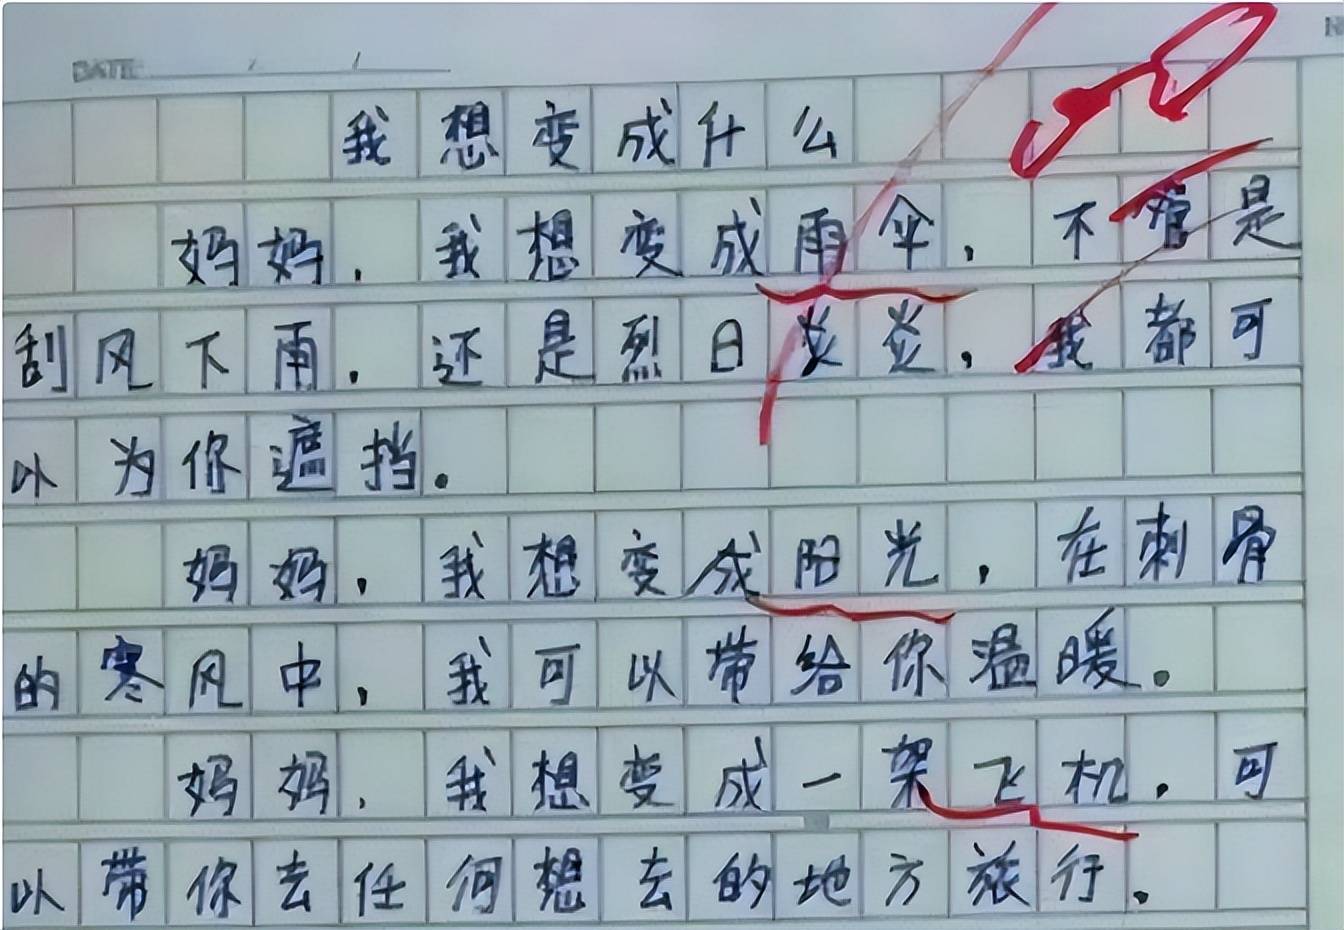 DATE
我想变成什么
妈妈，我想变成雨伞，不管是
刮风下雨，还是烈日炎炎，我都可
以为你遮挡。
妈妈，我想变成阳光，在刺骨
的寒风中，我可以带给你温暖。
妈妈，我想变成一架飞机，可
以带你去任何想去的地方旅行。